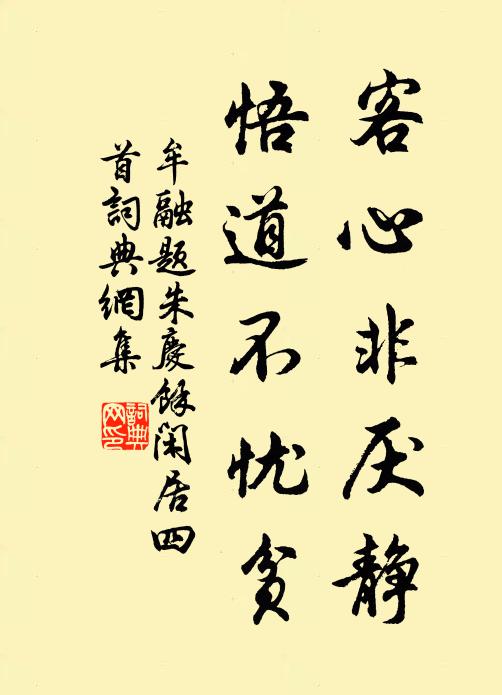 客心非厌静
悟道不忧贫
牟融题朱慶馀闲居四
首詞典網集
詞典
网印